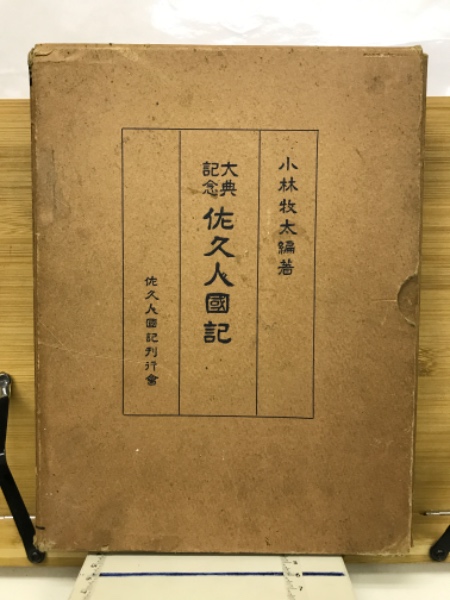 小林牧太編著
大典記念 佐久人國記
佐久人國記刊行會